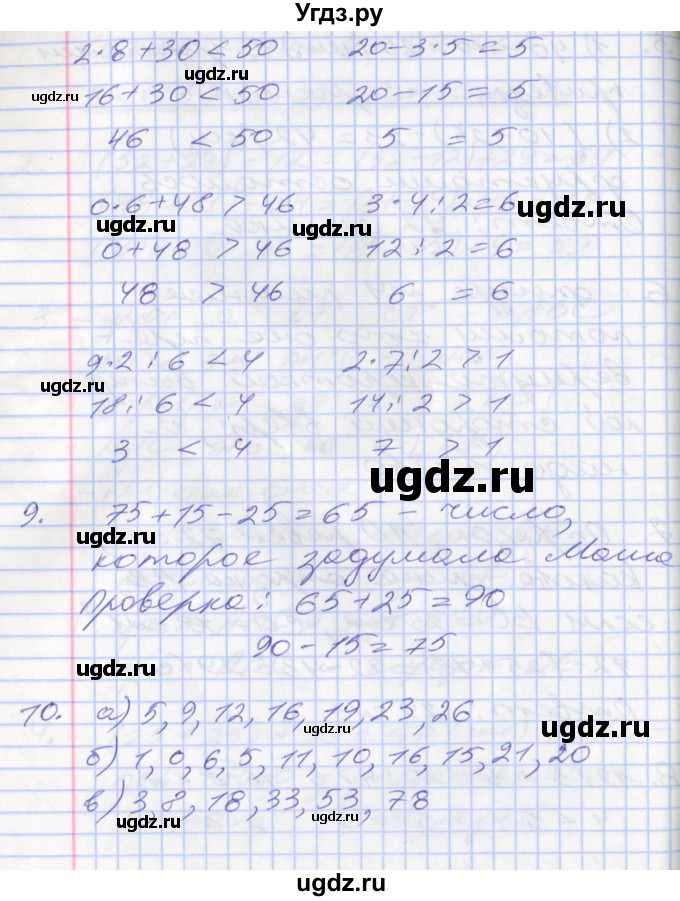 Угдз.ру
2·8+30<50 20-3·5=5
ugdz.ru
ugdz.ru 16+30<50 20-15=5
46 < 50 5 = 5
0·6+48>46 3·4:2=6
ugdz.ru ugdz.ru ugdz.ru
0+48>46 12:2=6
48 > 46 6 = 6
9·2:6<4 2·7:2>1
ugdz.ru
18:6<4 14:2>1
3 < 4 7 > 1
ugdz.ru
9. 75+15-25=65 - число,
ugdz.ru
которое задумала Маша
Проверка: 65+25=90
90-15=75
ugdz.ru
10. а) 5, 9, 12, 16, 19, 23, 26
ugdz.ru
б) 1, 0, 6, 5, 11, 10, 16, 15, 21, 20
в) 3, 8, 18, 33, 53, 78
ugdz.ru ugdz.ru
ugdz.ru